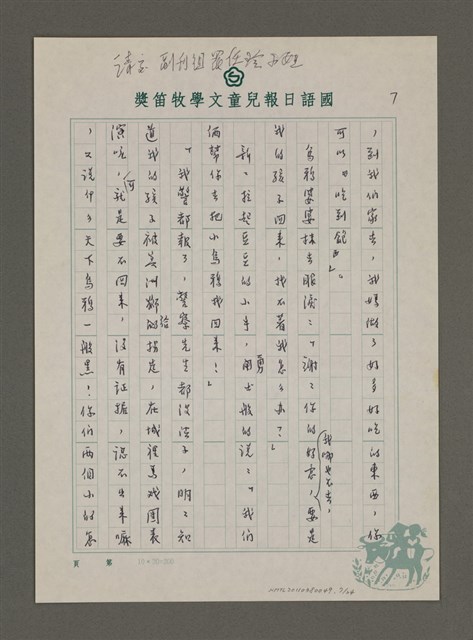 請交 副刊組
獎笛牧學文童兒報日語國
7
，到我們家去，我媽做了好多好吃的東西，你
可以「吃到飽」。」
烏鴉婆婆抹去眼淚：「謝謝你的好意，我哪也不去，要是
我的孩子回來，找不着我怎麼辦？」
新新拉起豆豆的小手，勇士般的說：「我們
倆幫你去把小烏鴉找回來！」
「我警都報了，警察先生都沒法子，明明知
道我的孩子被美洲獅給拐走，在城裡馬戲團表
演呢，可就是要不回來，沒有証据，認不出來嘛
，又說什麼天下烏鴉一般黑！你們兩個小的怎
頁 第
10×20=200